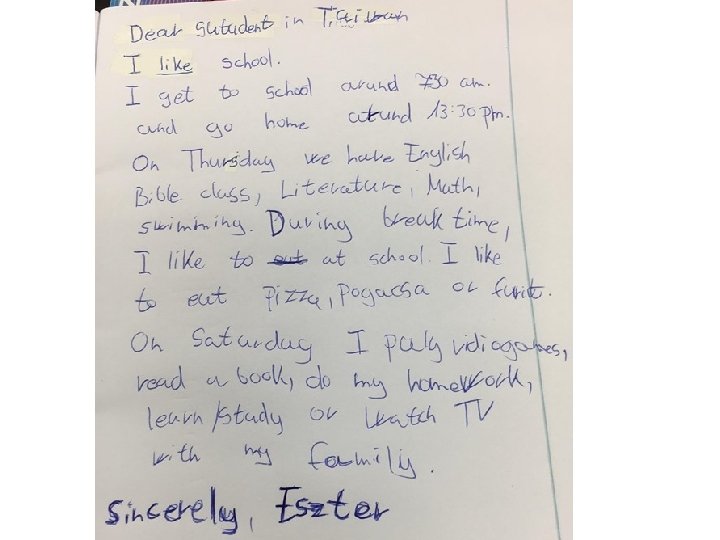 Dear sutudent in
I like school.
I get to school arund 730 am.
and go home atund 13:30 pm.
On Thursday we have English
Bible class, Literature, Math,
swimming. During break time,
I like to eat at school. I like
to eat Pizza, Pogacsa or furit.
On Saturday I paly vidiogames,
read a book, do my homework,
learn/study or watch TV
with my family.
Sincerely, Eszter